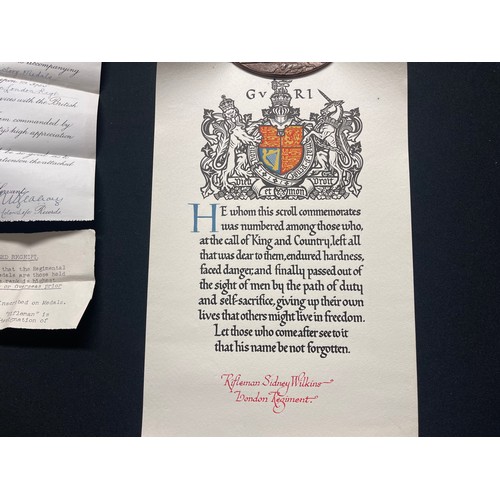 accompanying
London Regt
vices with the British
am commanded by
ty's high appreciation
Records
ED RECEIPT.
that the Regimental
edals are those held
or overseas prior
inscribed on Medals.
"rifleman" is
G V R I
Dieu et mon droit
HE whom this scroll commemorates
was numbered among those who,
at the call of King and Country, left all
that was dear to them, endured hardness,
faced danger, and finally passed out of
the sight of men by the path of duty
and self-sacrifice, giving up their own
lives that others might live in freedom.
Let those who come after see to it
that his name be not forgotten.
Rifleman Sidney Wilkins
London Regiment.